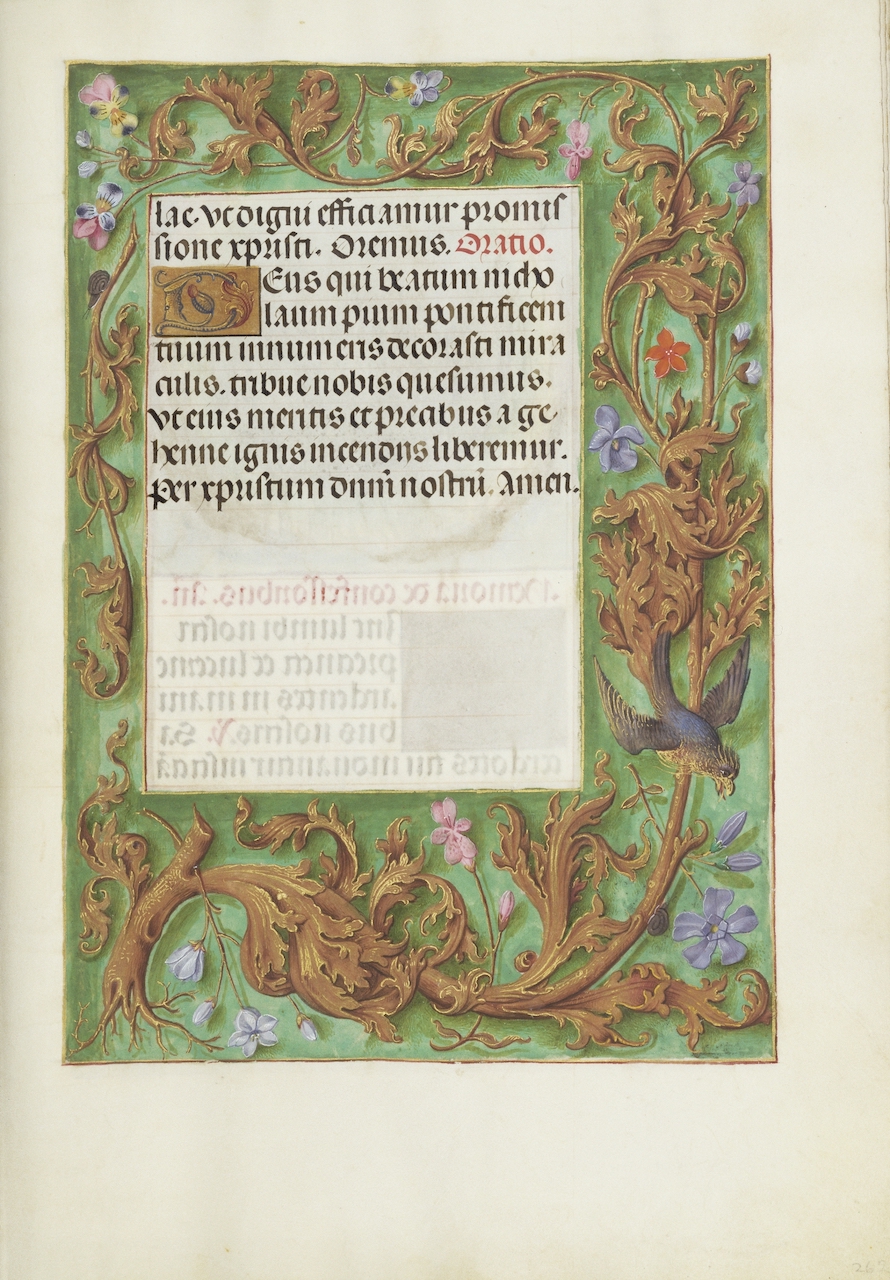 lae. vt digni efficiamur promis
sione xpristi. Oremus. Oratio.
Deus qui beatum nicho
laum pium pontificem
tuum innumeris decorasti mira
culis. tribue nobis quesumus.
vt eius meritis et precibus a ge-
henne ignis incendiis liberemur.
Per xpristum dn̄m nostrū. Amen.